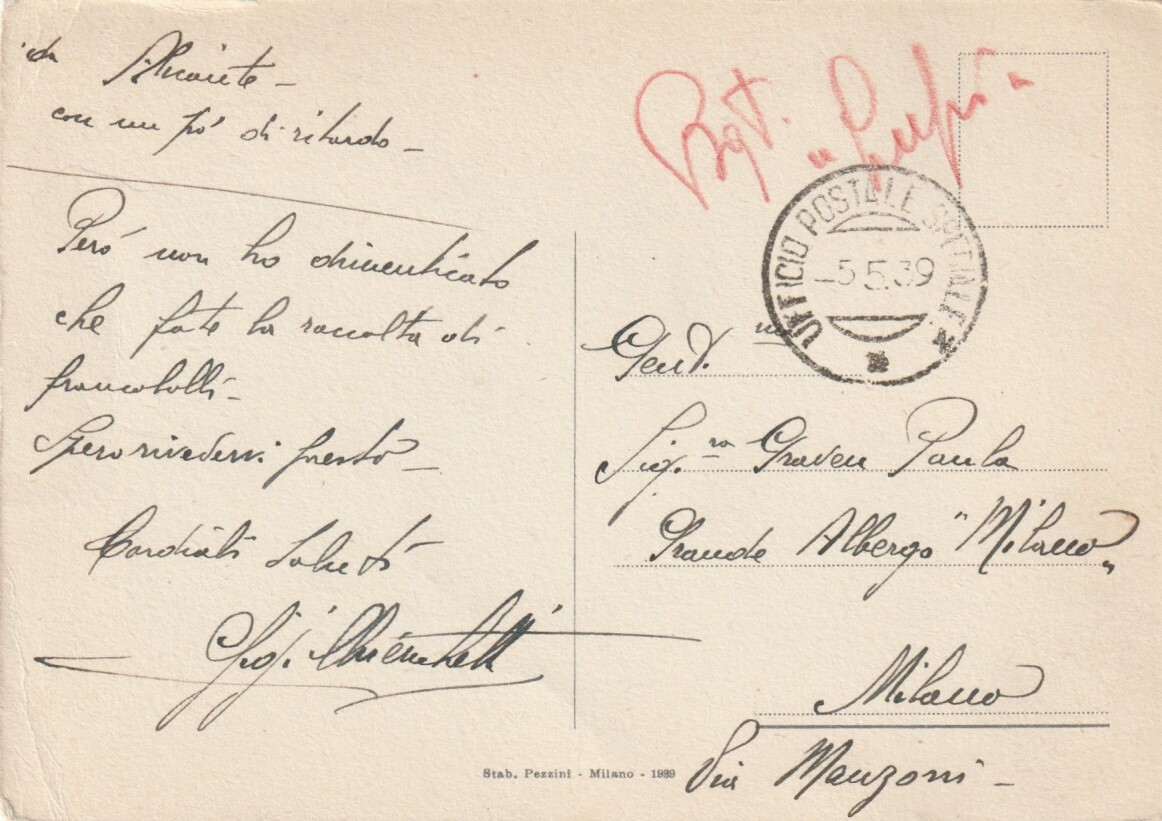 da Alicante -
con un pó di ritardo -
Peró non ho dimenticato
che fate la raccolta di
francobolli -
Spero rivedervi presto -
Cordiali saluti
Gigi
Bgt.
UFFICIO POSTALE SPECIALE
-5.5.39
Gent. ma
Sig. ra Graven Paula
Grande Albergo "Milano"
Milano
Via Manzoni -
Stab. Pezzini - Milano - 1939